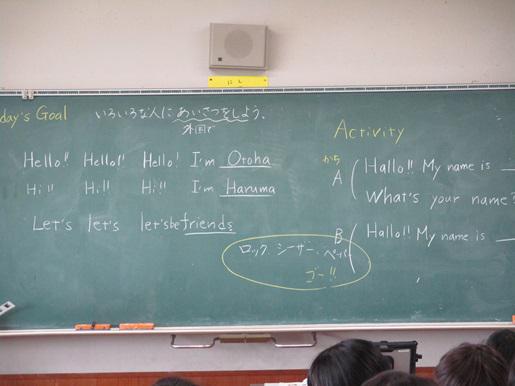 day's Goal
いろいろな人に あいさつをしよう。
外国で
Hello!! Hello!! Hello! I'm Otoha
Hi!! Hi!! Hi!! I'm Haruma
Let's let's let's be friends
Activity
かち
A Hallo!! My name is
What's your name?
B Hallo!! My name is
ロック シーザー ペーパー
ゴー!!